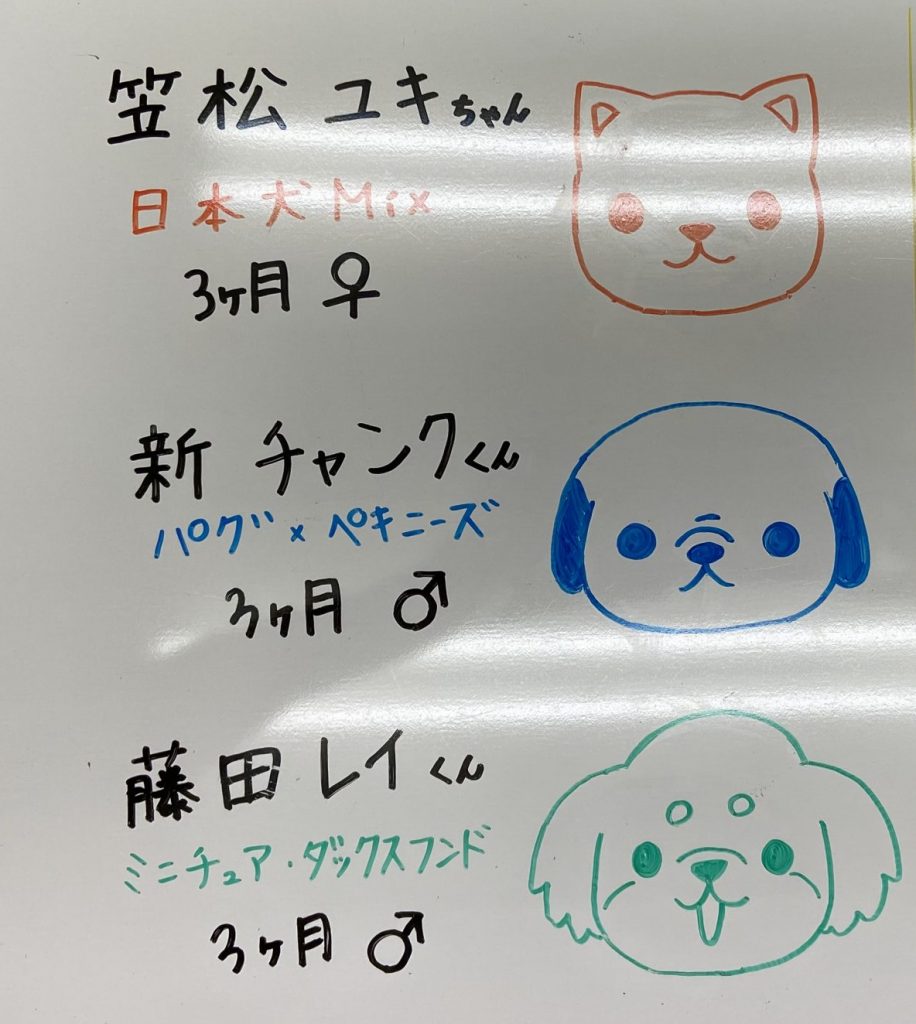 笠松 ユキちゃん
日本犬Mix
3ヶ月 ♀
新 チャンクくん
パグ×ペキニーズ
3ヶ月 ♂
藤田 レイくん
ミニチュア・ダックスフンド
3ヶ月 ♂